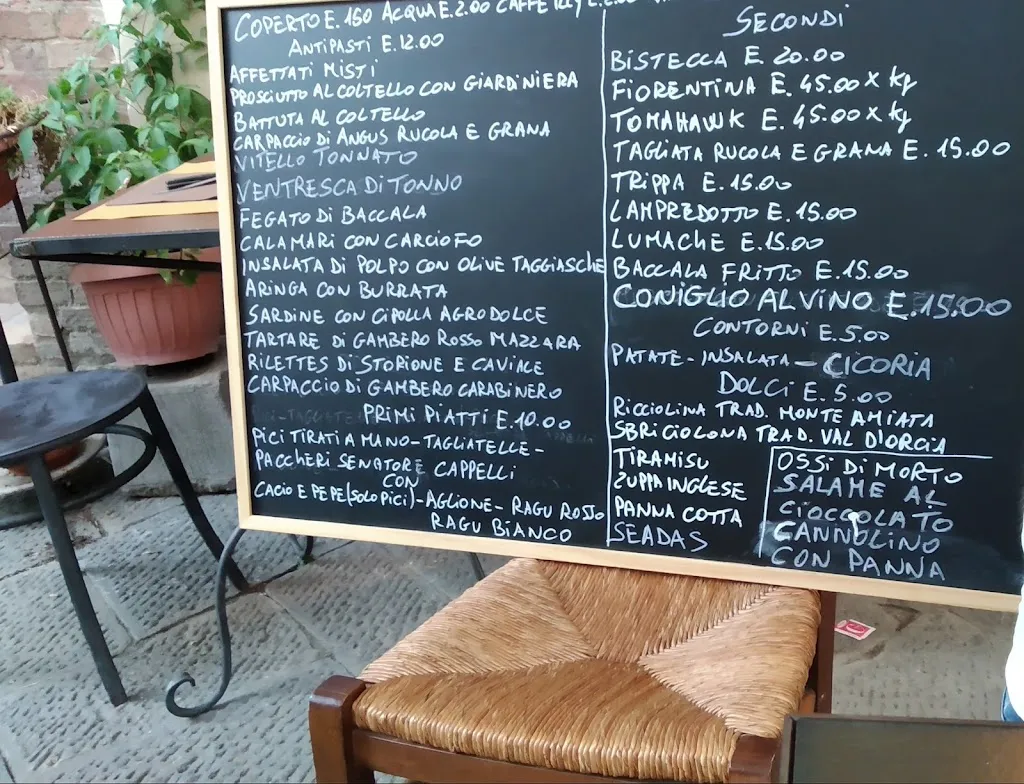 COPERTO E. 1.50 ACQUA E. 2.00 CAFFE
ANTIPASTI E.12.00
AFFETTATI MISTI
PROSCIUTTO AL COLTELLO CON GIARDINIERA
BATTUTA AL COLTELLO
CARPACCIO DI ANGUS RUCOLA E GRANA
VITELLO TONNATO
VENTRESCA DI TONNO
FEGATO DI BACCALA
CALAMARI CON CARCIOFO
INSALATA DI POLPO CON OLIVE TAGGIASCHE
ARINGA CON BURRATA
SARDINE CON CIPOLLA AGRODOLCE
TARTARE DI GAMBERO ROSSO MAZZARA
RILETTES DI STORIONE E CAVIALE
CARPACCIO DI GAMBERO CARABINERO
PRIMI PIATTI E.10.00
PICI TIRATI A MANO - TAGLIATELLE -
PACCHERI SENATORE CAPPELLI
CON
CACIO E PEPE (SOLO PICI) - AGLIONE - RAGU ROSSO
RAGU BIANCO
SECONDI
BISTECCA E. 20.00
FIORENTINA E. 45.00 x kg
TOMAHAWK E. 45.00 x kg
TAGLIATA RUCOLA E GRANA E. 15.00
TRIPPA E. 15.00
LAMPREDOTTO E. 15.00
LUMACHE E.15.00
BACCALA FRITTO E.15.00
CONIGLIO AL VINO E.15.00
CONTORNI E.5.00
PATATE - INSALATA - CICORIA
DOLCI E.5.00
RICCIOLINA TRAD. MONTE AMIATA
SBRICIOLONA TRAD. VAL D'ORCIA
TIRAMISU
ZUPPA INGLESE
PANNA COTTA
SEADAS
OSSI DI MORTO
SALAME AL
CIOCCOLATO
CANNOLINO
CON PANNA